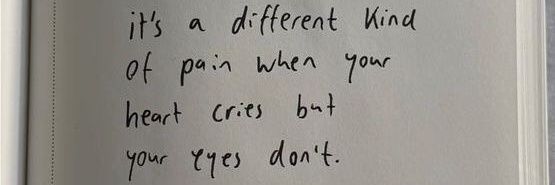 it's a different kind
of pain when your
heart cries but
your eyes don't.